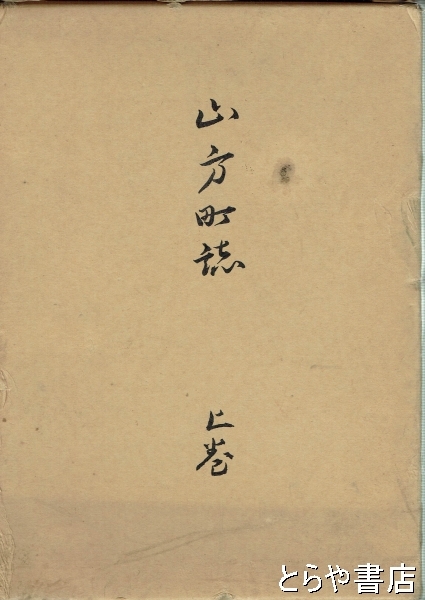 山方町誌
上巻
とらや書店